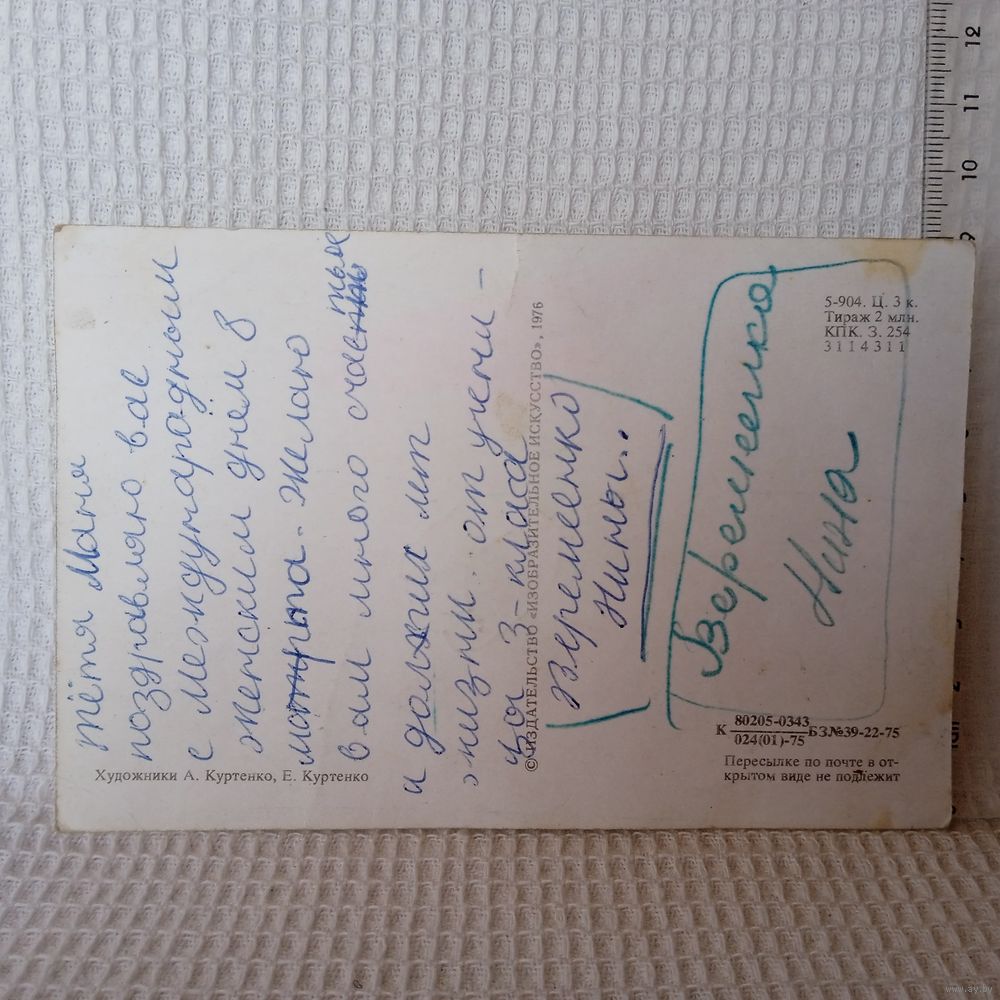 тётя Маня
поздравляю вас
с Международным
женским днем 8
марта. Желаю
вам много счастья
и долгих лет
жизни. от учени-
ца 3-класа
Веремеенко
Нины.
Веремеенко
Нина
Художники А. Куртенко, Е. Куртенко
© ИЗДАТЕЛЬСТВО «ИЗОБРАЗИТЕЛЬНОЕ ИСКУССТВО», 1976
5-904. Ц. 3 к.
Тираж 2 млн.
КПК. З. 254
3114311
К 80205-0343 БЗ№39-22-75
024(01)-75
Пересылке по почте в от-
крытом виде не подлежит
12
11
10
9
www.ay.by